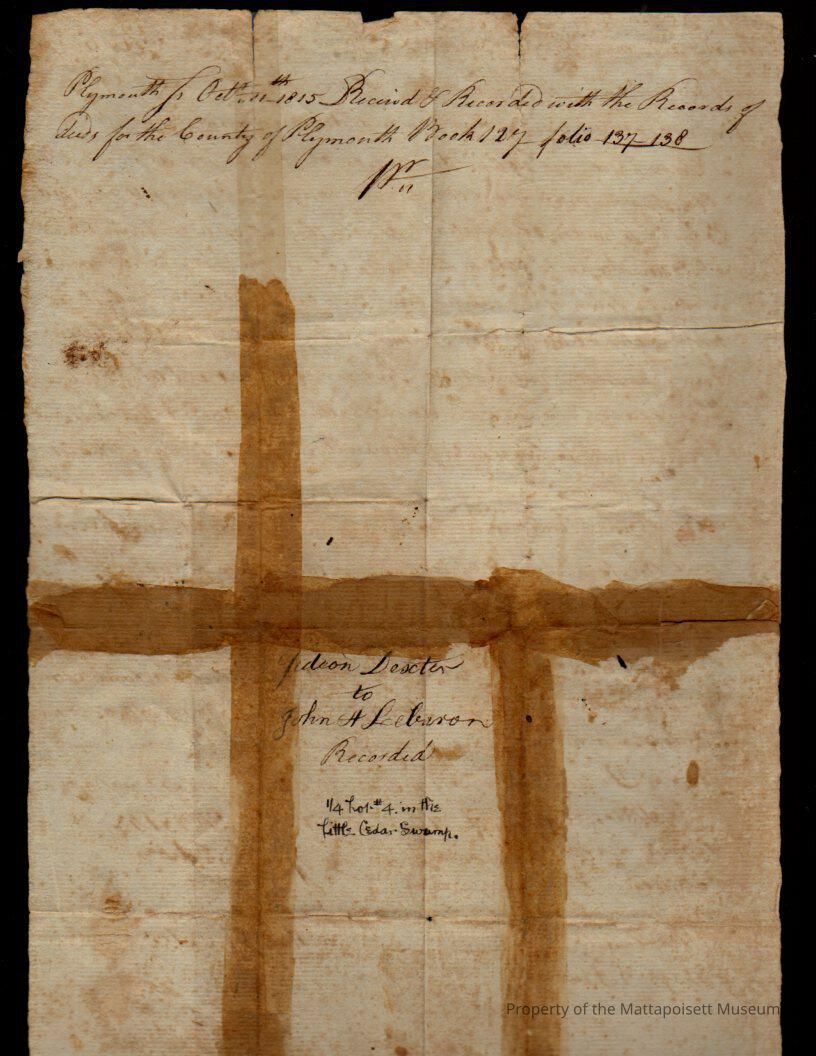 Plymouth ss Octr. 11th 1815 Receivd & Recorded with the Records of
deeds for the County of Plymouth Book 127 folio 137-138
Gideon Dexter
to
John A Lebaron
Recorded
1/4 Lot #4. in the
Little Cedar Swamp.
Property of the Mattapoisett Museum